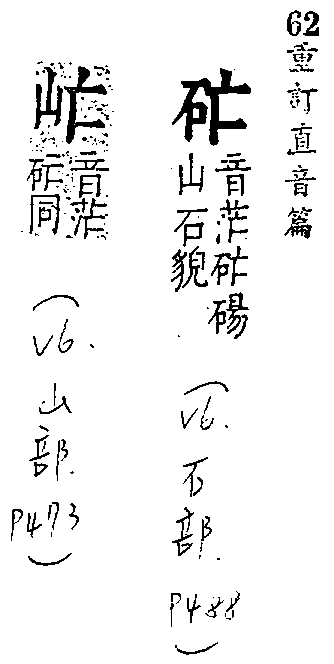 62
重訂直音篇
音茫碭
山石貌
(V6.石部.P488)
音茫
同
(V6.山部.P473)